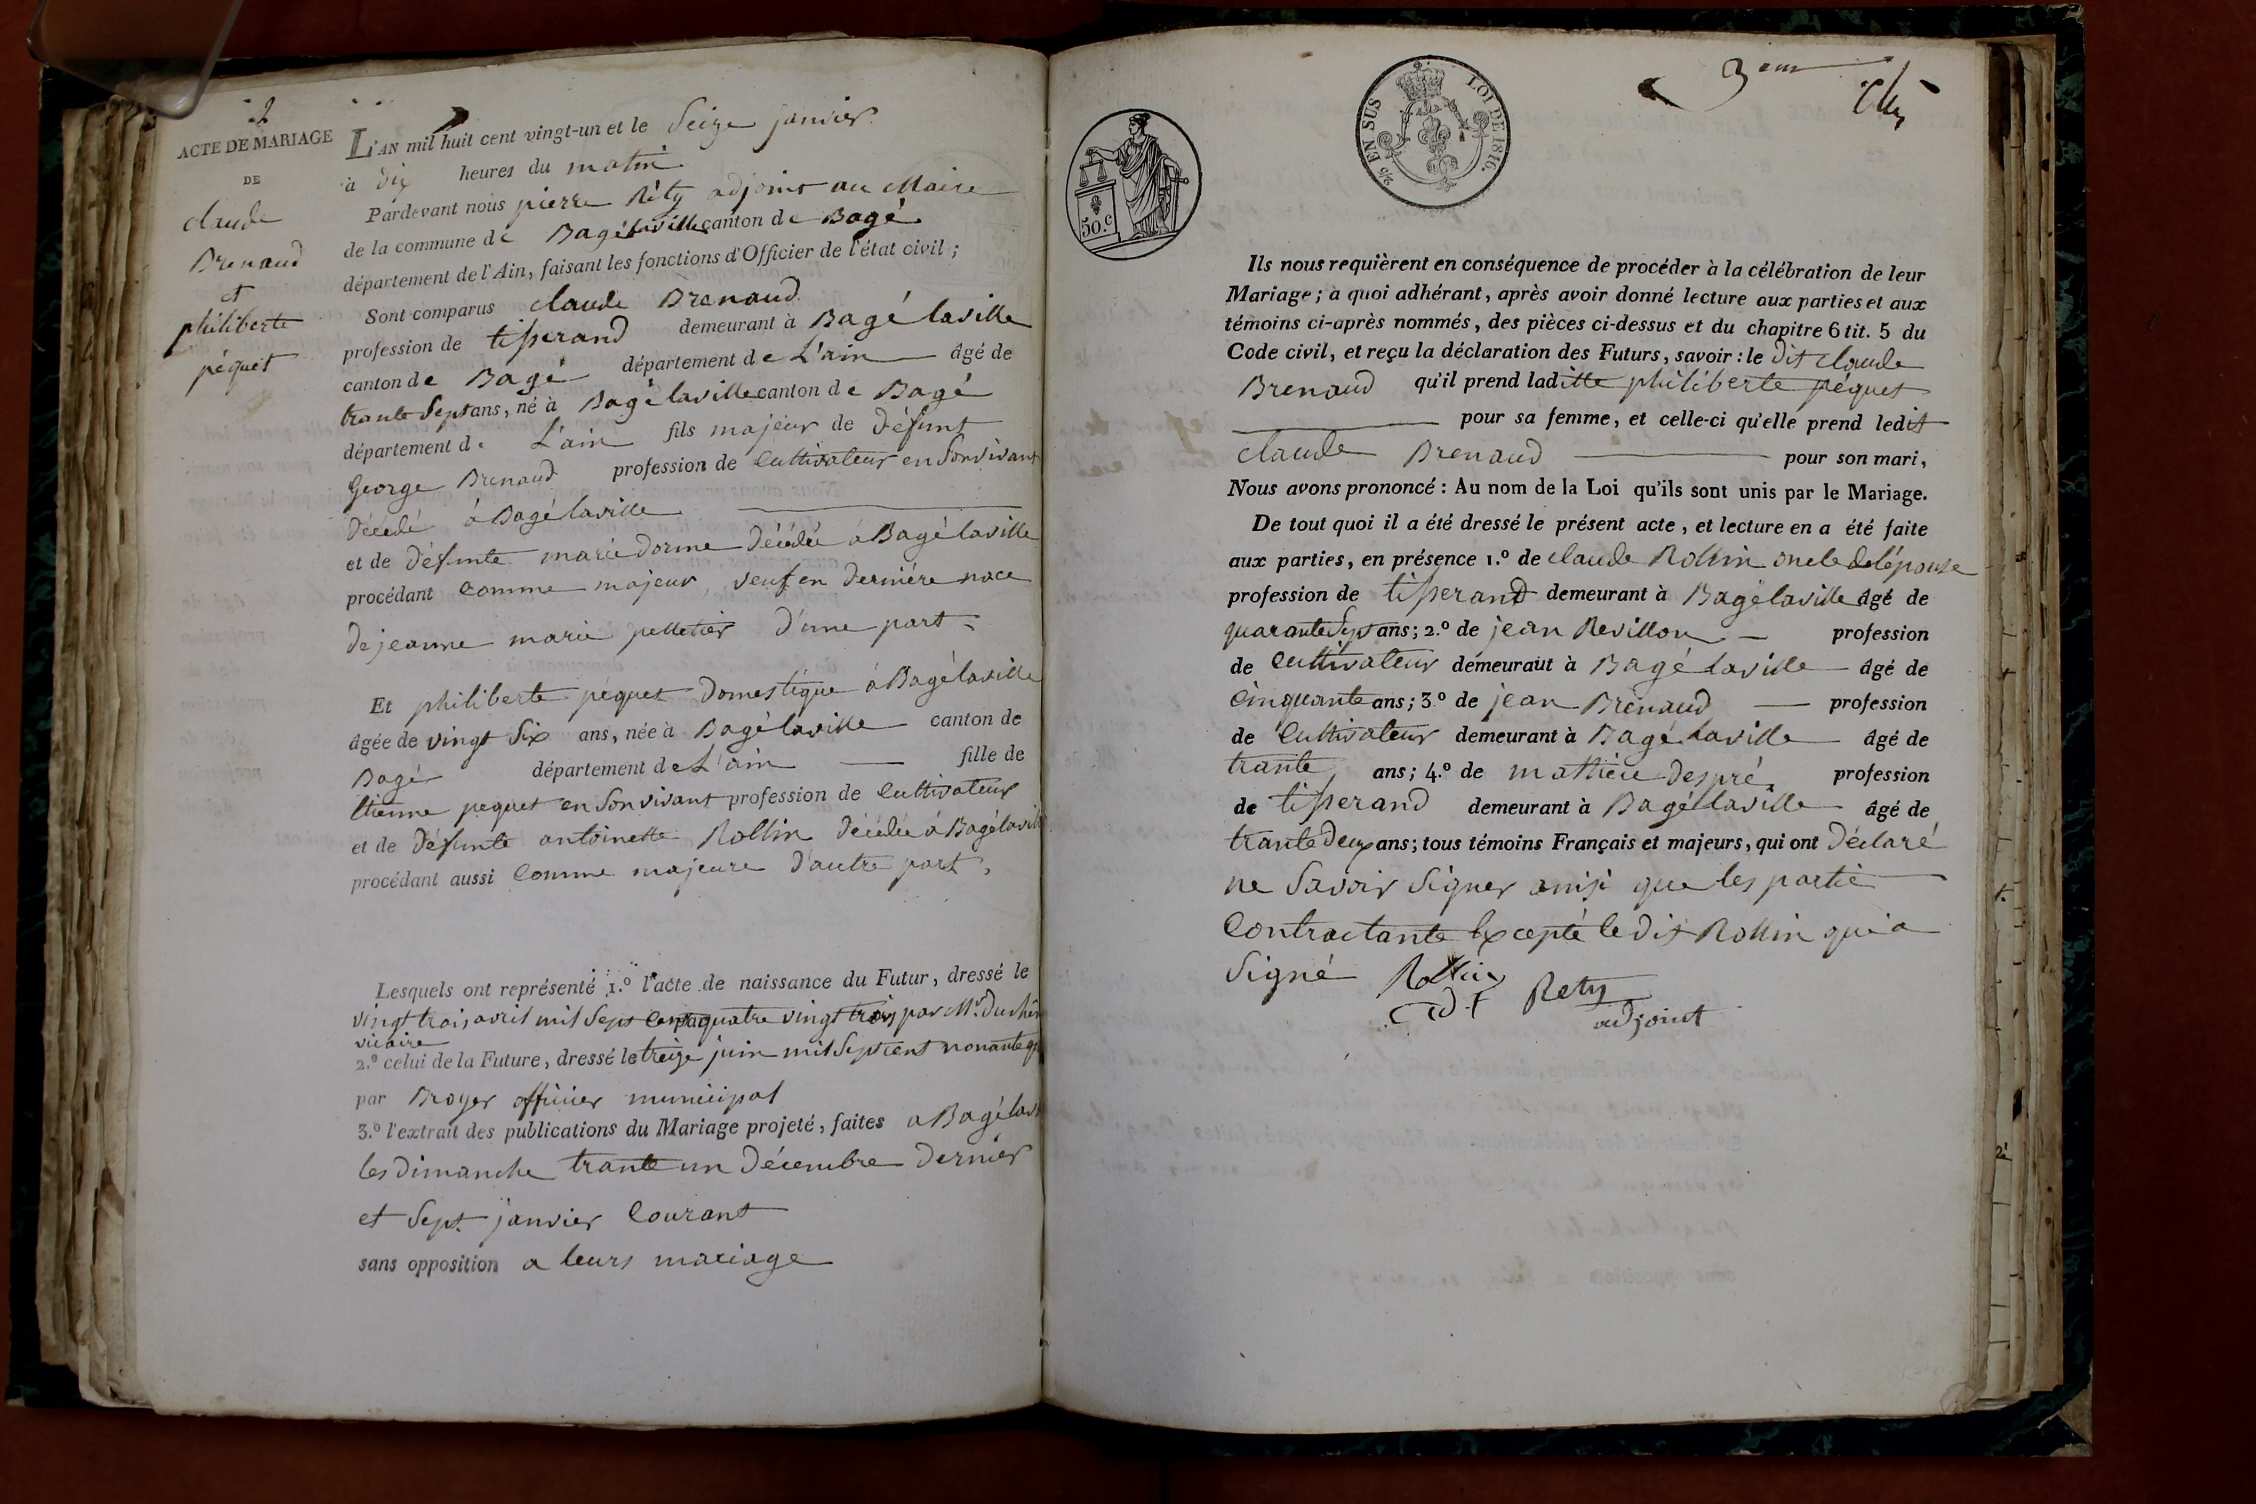 2
ACTE DE MARIAGE
DE
claude
Brenaud
et
philiberte
péquet
L'AN mil huit cent vingt-un et le Seize janvier
à dix heures du matin
Pardevant nous pierre Réty adjoint au Maire
de la commune de Bagé laville canton de Bagé
département de l'Ain, faisant les fonctions d'Officier de l'état civil;
Sont comparus claude Brenaud
profession de tisserand demeurant à Bagé laville
canton de Bagé département de L'ain âgé de
trante Sept ans, né à Bagé laville canton de Bagé
département de L'ain fils majeur de défunt
George Brenaud profession de Cultivateur en Son vivant
décédé à Bagé laville
et de défunte marie dorme décédée à Bagé laville
procédant comme majeur, veuf en dernière noce
de jeanne marie pelletier d'une part.
Et philiberte péquet domestique à Bagé laville
âgée de vingt Six ans, née à Bagé laville canton de
Bagé département de L'ain fille de
Etienne pequet en Son vivant profession de Cultivateur
et de défunte antoinette Rollin décédée à Bagé lavill
procédant aussi comme majeure d'autre part,
Lesquels ont représenté 1.º l'acte de naissance du Futur, dressé le
vingt trois avril mil Sept Cent quatre vingt trois par Mr. duchên
vicaire
2.º celui de la Future, dressé le treize juin mil Sept cent nonante q
par Broyer officier municipal
3.º l'extrait des publications du Mariage projeté, faites a Bagé lav
les dimanche trante un décembre dernier
et Sept janvier Courant
sans opposition a leurs mariage
3eme
2/5 EN SUS LOI DE 1816.
50.c
Ils nous requièrent en conséquence de procéder à la célébration de leur
Mariage; a quoi adhérant, après avoir donné lecture aux parties et aux
témoins ci-après nommés, des pièces ci-dessus et du chapitre 6 tit. 5 du
Code civil, et reçu la déclaration des Futurs, savoir: le dit claude
Brenaud qu'il prend laditte philiberte péquet
pour sa femme, et celle-ci qu'elle prend ledit
claude Brenaud pour son mari,
Nous avons prononcé: Au nom de la Loi qu'ils sont unis par le Mariage.
De tout quoi il a été dressé le présent acte, et lecture en a été faite
aux parties, en présence 1.º de claude Rollin oncle de l'épouse
profession de tisserand demeurant à Bagé laville âgé de
quarante Sept ans; 2.º de jean Revillon profession
de Cultivateur demeuraut à Bagé laville âgé de
Cinquante ans; 3.º de jean Brenaud profession
de Cultivateur demeurant à Bagé Laville âgé de
trante ans; 4.º de mathieu despré profession
de tisserand demeurant à Bagé laville âgé de
trante deux ans; tous témoins Français et majeurs, qui ont déclaré
ne Savoir Signer ainsi que les partie
Contractante Excepté le dit Rollin qui a
Signé Rollin Rety
adjoint